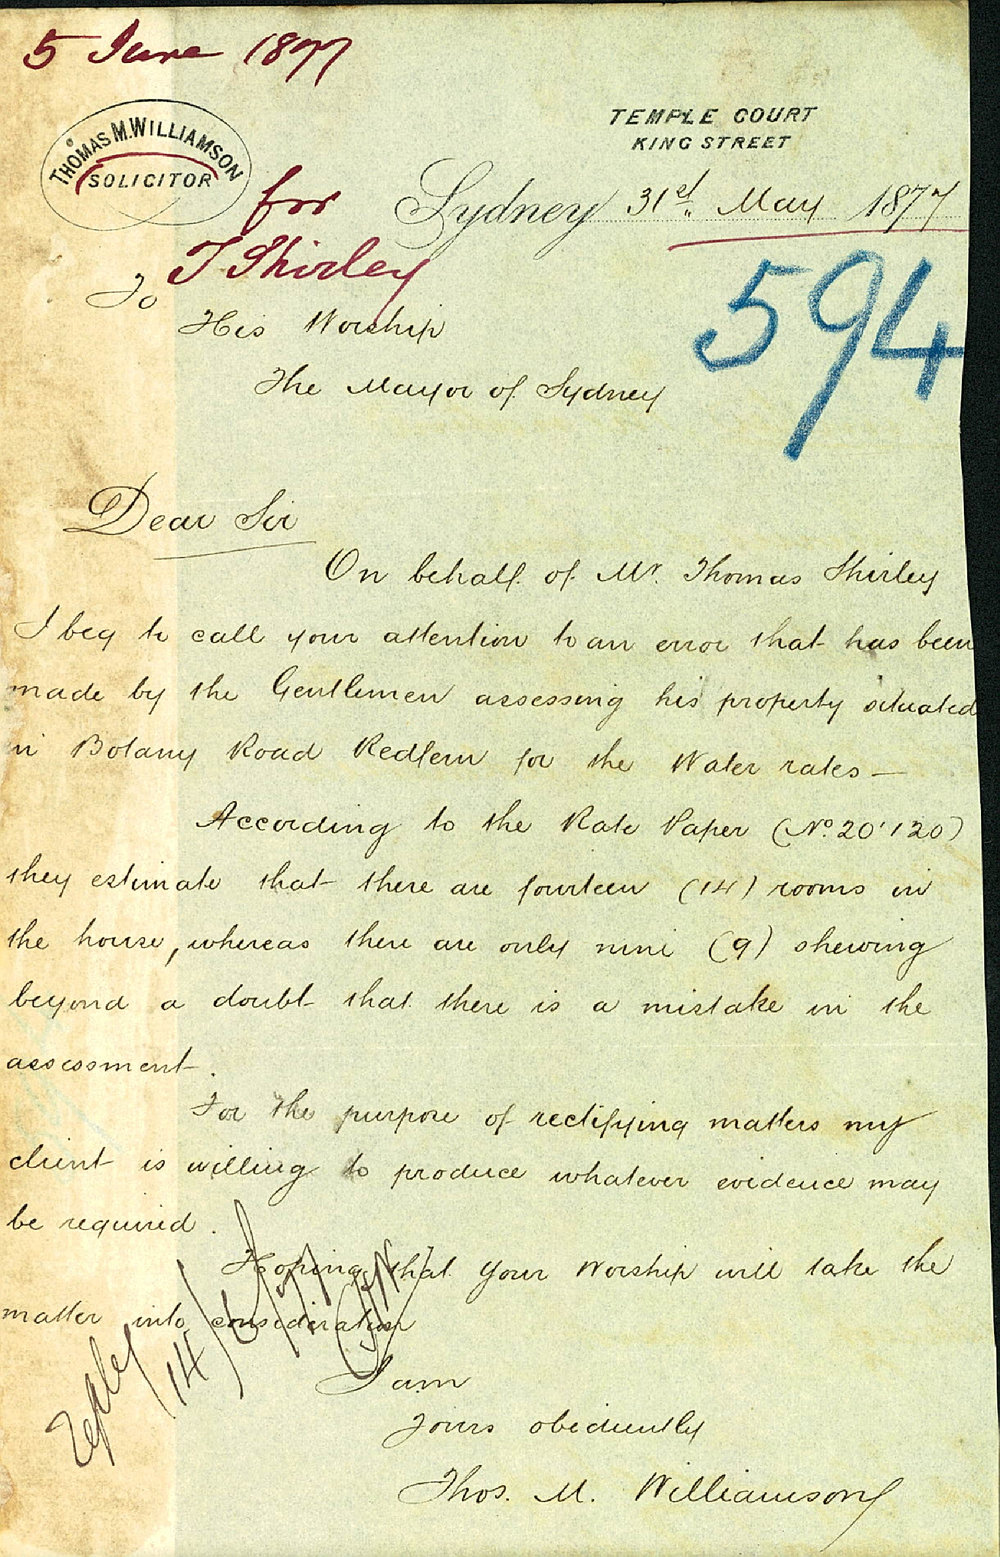 5 June 1877
THOMAS M. WILLIAMSON
SOLICITOR
TEMPLE COURT
KING STREET
for
Sydney 31st May 1877
T Shirley
594
To
His Worship
The Mayor of Sydney
Dear Sir
On behalf of Mr. Thomas Shirley
I beg to call your attention to an error that has been
made by the Gentlemen assessing his property situated
in Botany Road Redfern for the Water rates —
According to the Rate Paper (No. 20'120)
they estimate that there are fourteen (14) rooms in
the house, whereas there are only nine (9) shewing
beyond a doubt that there is a mistake in the
assessment.
For the purpose of rectifying matters my
client is willing to produce whatever evidence may
be required.
Hoping that your Worship will take the
matter into consideration
I am
Yours obediently
Thos. M. Williamson
14/6/77